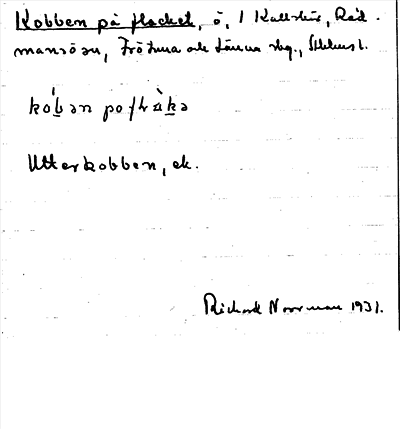 Kobben på flacket, ö, 1 Kallskär, Råd-
mansö sn, Frötuna och Länna sbg., Sthlms l.
kóban po flàka
Utterkobben, ek.
Richard Norrman 1931.